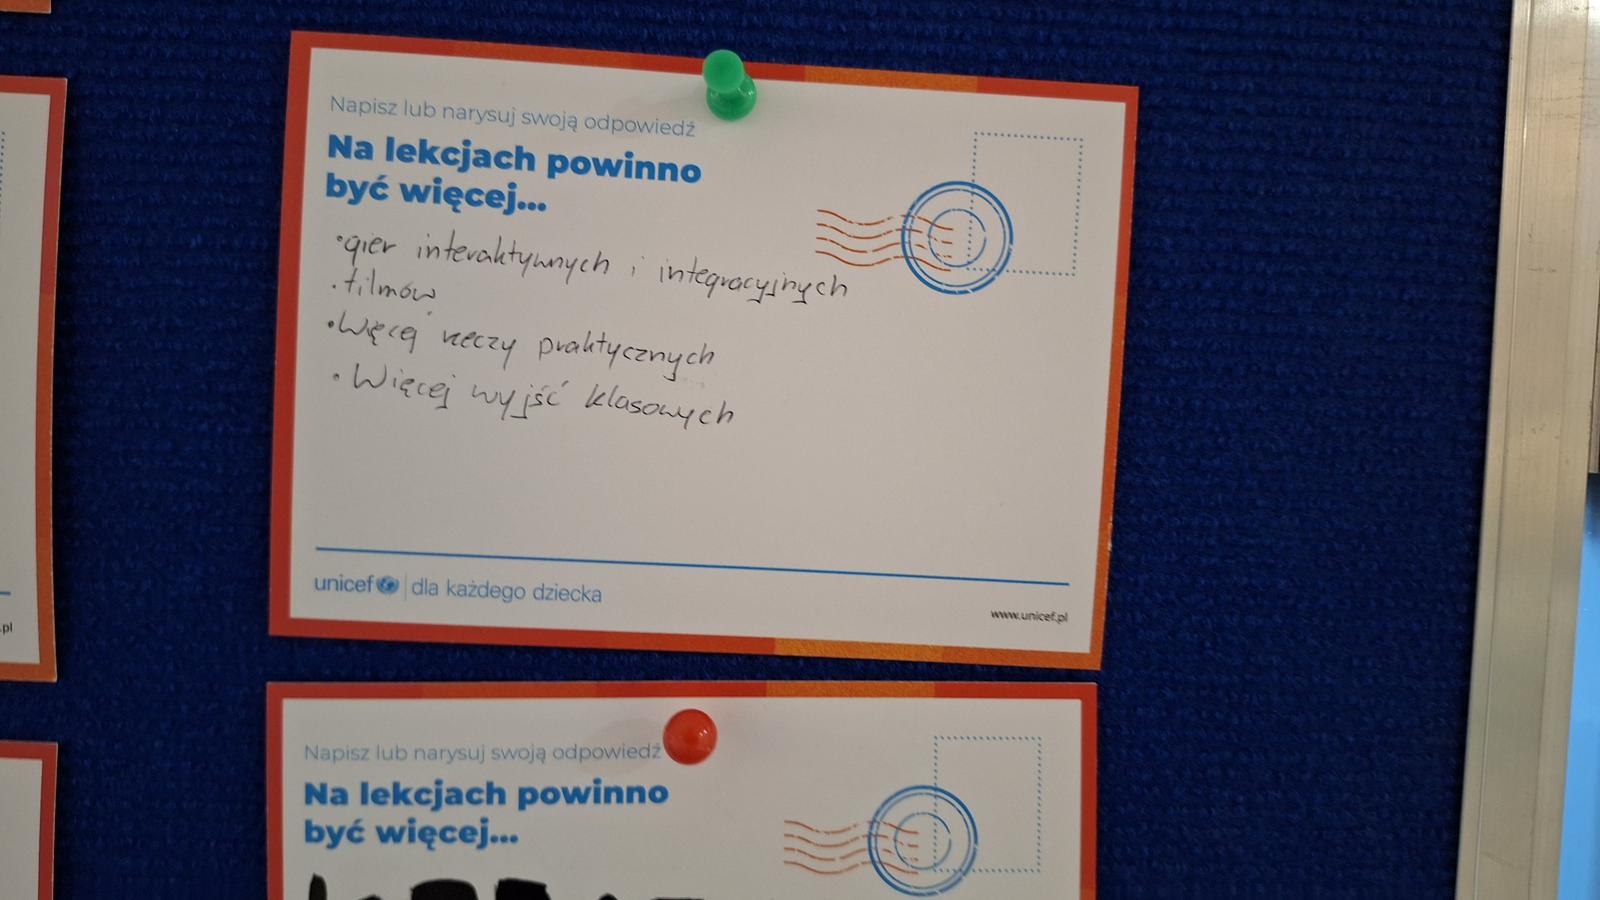 Napisz lub narysuj swoją odpowiedź
Na lekcjach powinno
być więcej...
•gier interaktywnych i integracyjnych
•filmów
•Więcej rzeczy praktycznych
•Więcej wyjść klasowych
unicef | dla każdego dziecka
www.unicef.pl
.pl
Napisz lub narysuj swoją odpowiedź
Na lekcjach powinno
być więcej...